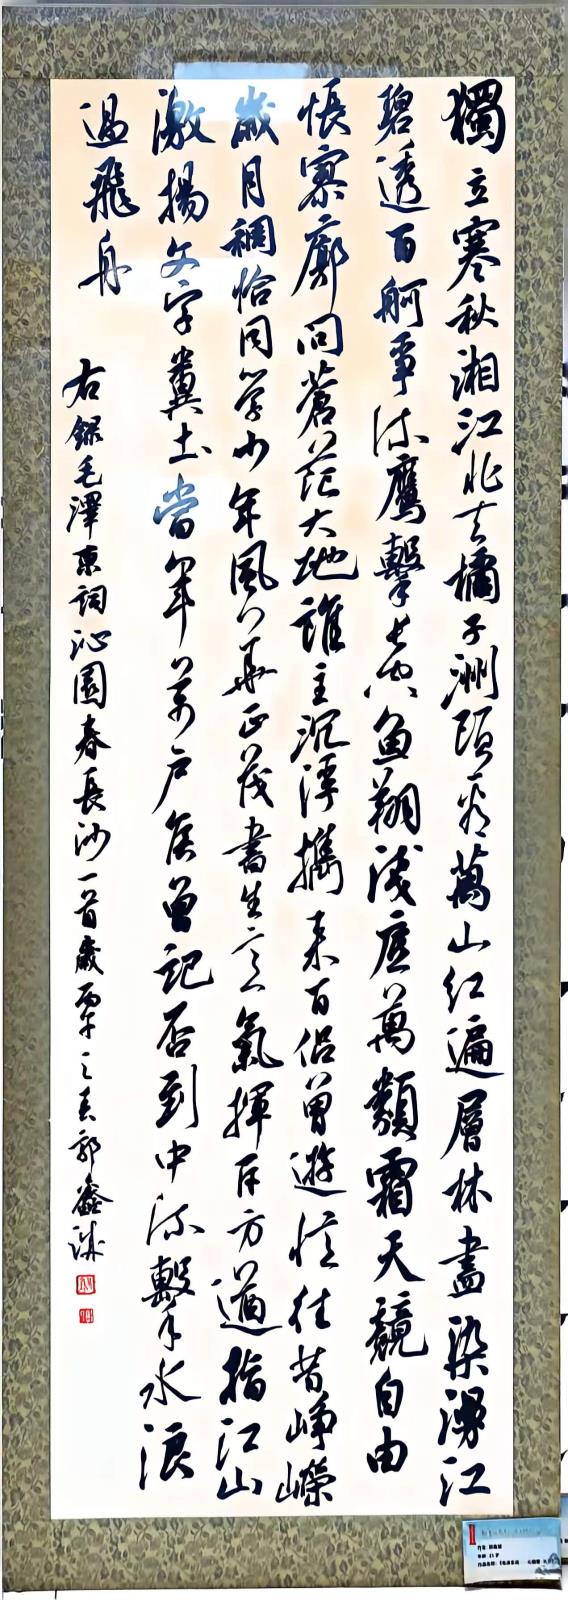 獨立寒秋湘江北去橘子洲頭看萬山紅遍層林盡染漫江
碧透百舸爭流鷹擊長空魚翔淺底萬類霜天競自由
悵寥廓問蒼茫大地誰主沉浮攜來百侶曾遊憶往昔崢嶸
歲月稠恰同學少年風華正茂書生意氣揮斥方遒指江山
激揚文字糞土當年萬戶侯曾記否到中流擊水浪
遏飛舟
右錄毛澤東詞沁園春長沙一首歲之春郭鑫